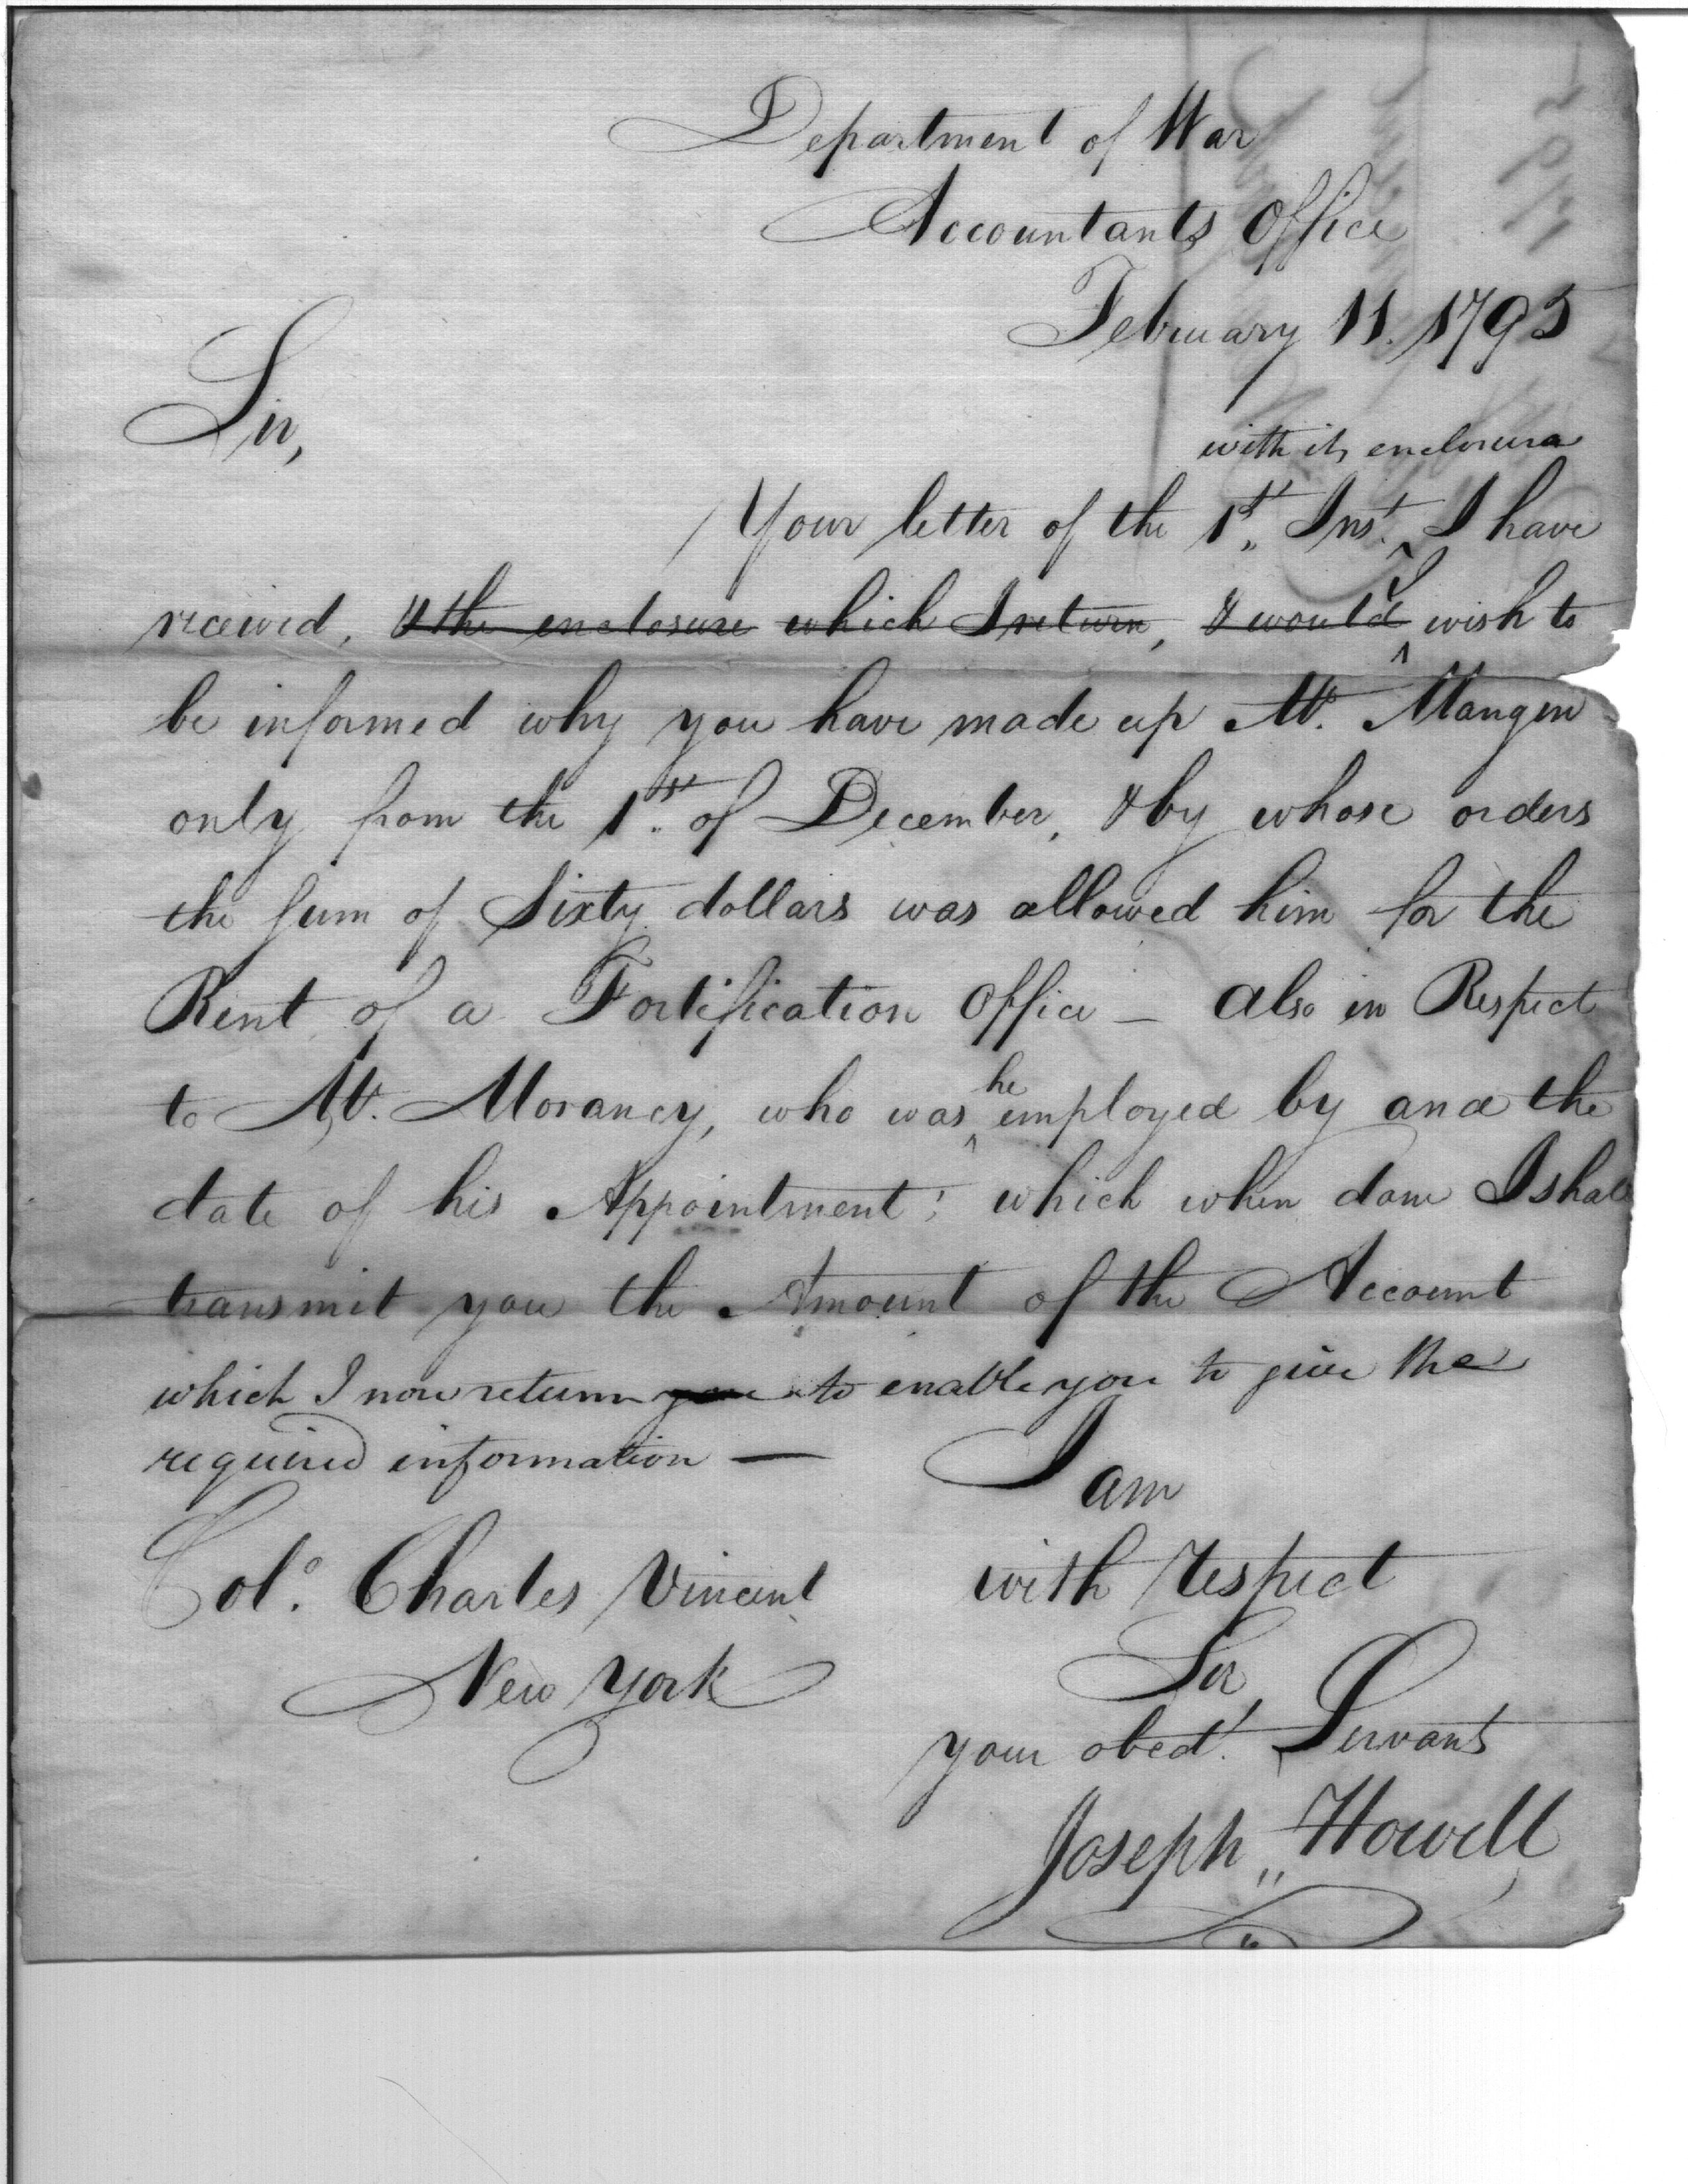 Department of War
Accountants Office
February 11. 1795
Sir,
with its enclosure
Your letter of the 1st Inst. ^ I have
I
received, & the enclosure which I return, & would ^ wish to
be informed why you have made up Mr. Mangin
only from the 1st of December, & by whose orders
the Sum of Sixty dollars was allowed him for the
Rent of a Fortification Office – also in Respect
he
to Mr. Morancy, who was ^ employed by and the
date of his Appointment; which when done I shall
transmit you the Amount of the Account
which I now return you to enable you to give the
required information —
I am
Colo. Charles Vincent
with respect
New York
Sir
your obedt. Servant
Joseph Howell